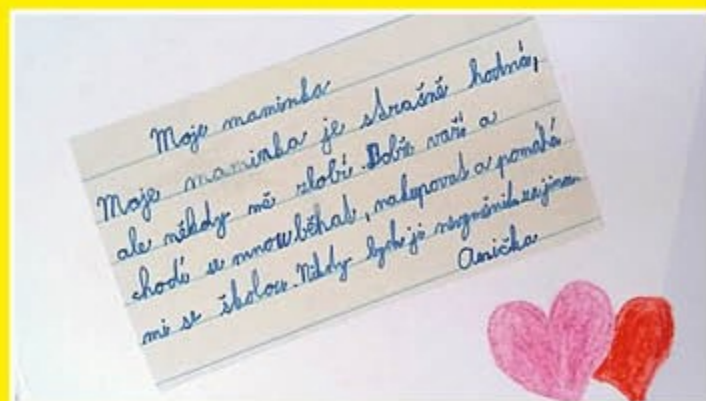 Moje maminka
Moje maminka je strašně hodná,
ale někdy mě zlobí. Dobře vaří a
chodí se mnou běhat, nakupovat a pomáhá
mi se školou. Nikdy bych ji nevyměnila za jinou
Anička